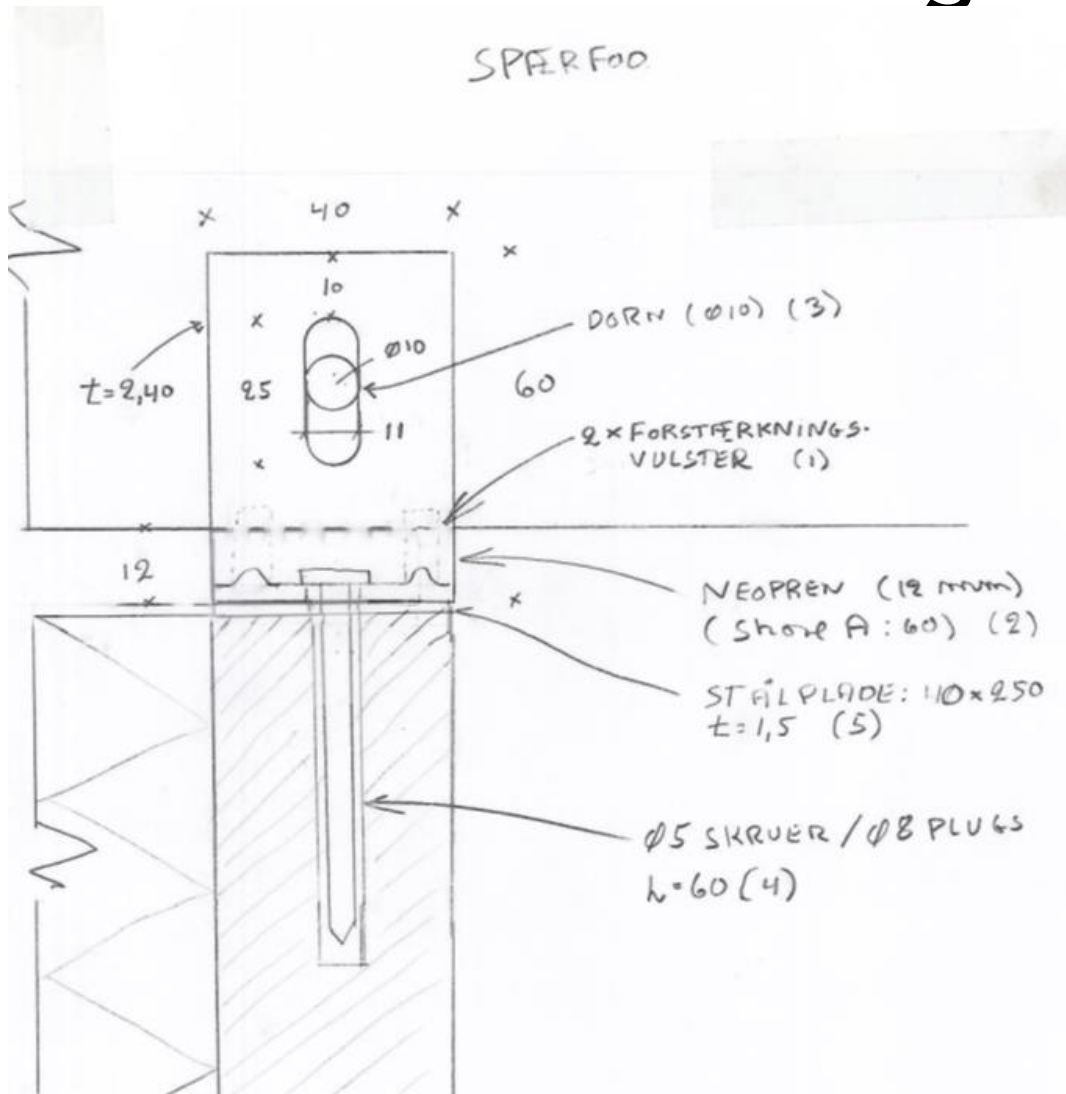 SPÆRFOD
40
10
DORN (Ø10) (3)
Ø10
t=2,40
25
60
11
2 × FORSTÆRKNINGS-
VULSTER (1)
12
NEOPREN (12 mm)
(Shore A : 60) (2)
STÅLPLADE: 110×250
t=1,5 (5)
Ø5 SKRUER / Ø8 PLUGS
L=60 (4)